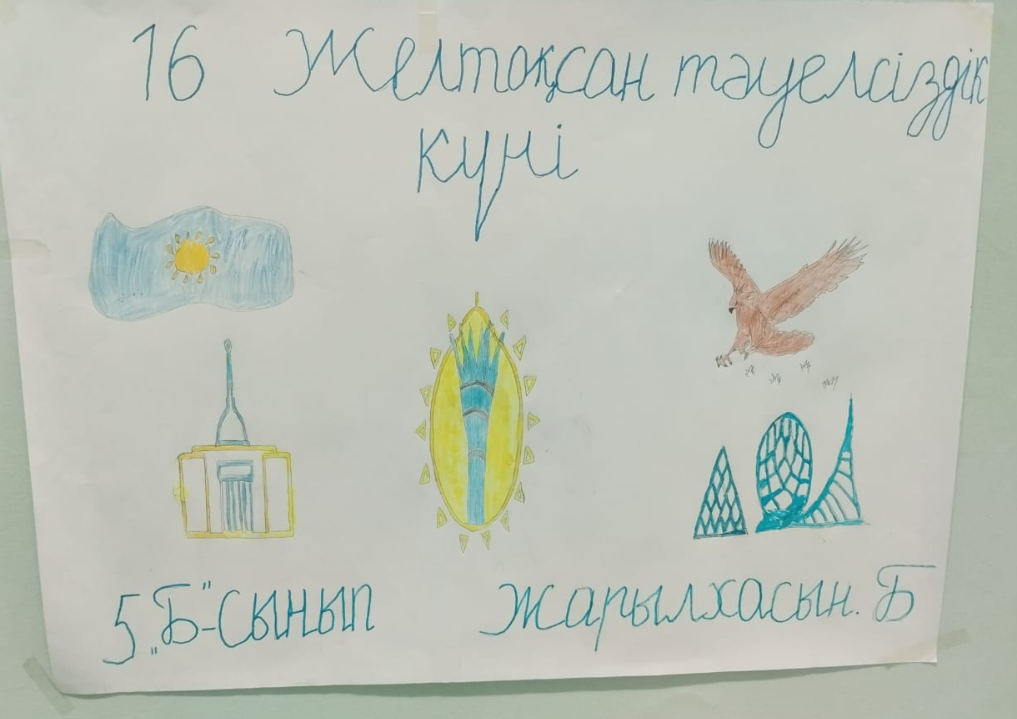 16 Желтоқсан тәуелсіздік
күні
5 „Б"-сынып
Жарылхасын. Б